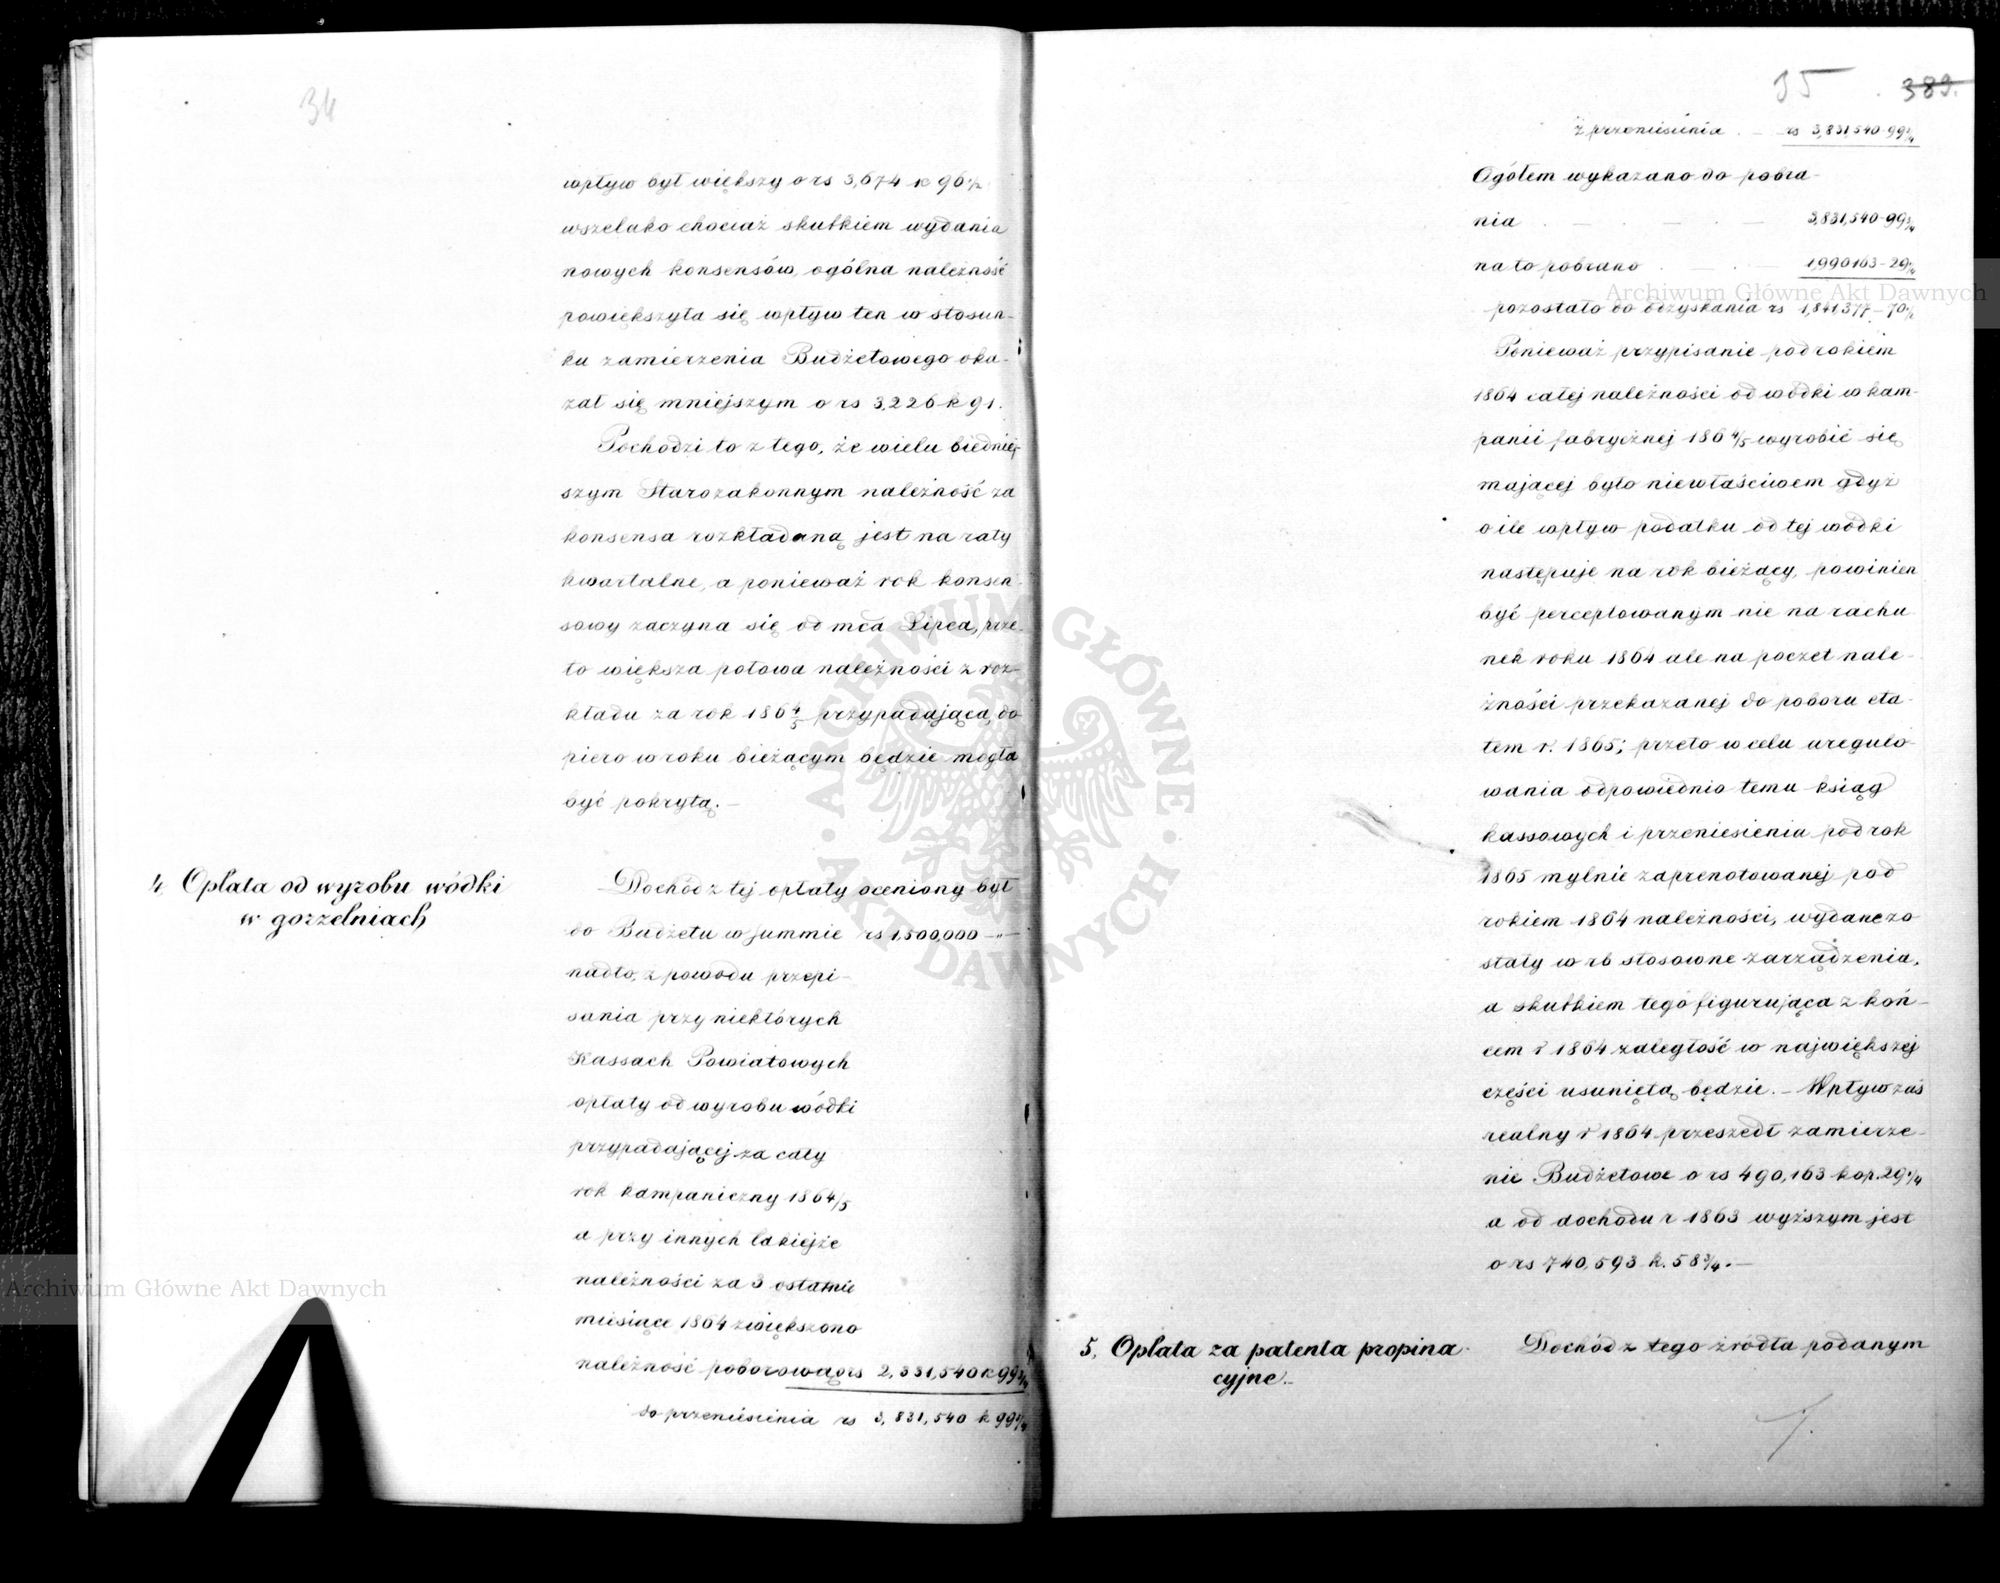 34
wpływ był większy o rs 3,674 k 96½
wszelako chociaż skutkiem wydania
nowych konsensów, ogólna należność
powiększyła się wpływ ten w stosun-
ku zamierzenia Budżetowego oka-
zał się mniejszym o rs 3,226 k 91.
Pochodzi to z tego, że wielu biedniej-
szym Starozakonnym należność za
konsensa rozkładaną jest na raty
kwartalne, a ponieważ rok konsen-
sowy zaczyna się od mca Lipca, prze-
to większa połowa należności z roz-
kładu za rok 1864/5 przypadająca, do
piero w roku bieżącym będzie mogła
być pokrytą.-
4 Opłata od wyrobu wódki
w gorzelniach
Dochód z tej opłaty oceniony był
do Budżetu w summie rs 1,500,000 -"-
nadto, z powodu przepi-
sania przy niektórych
Kassach Powiatowych
opłaty od wyrobu wódki
przypadającej za cały
rok kampaniczny 1864/5
a przy innych takiejże
należności za 3 ostatnie
miesiące 1864 zwiększono
należność poborową o rs 2,331,540 k 99¾
do przeniesienia rs 3,831,540 k 99¾
35 389.
z przeniesienia . - rs 3,831,540-99¾
Ogółem wykazano do pobra-
nia . - . - . - 3,831,540-99¾
na to pobrano . - . - 1,990163-29¼
pozostało do odzyskania rs 1,841,377-70½
Ponieważ przypisanie pod rokiem
1864 całej należności od wódki w kam-
panii fabrycznej 1864/5 wyrobić się
mającej było niewłaściwem gdyż
o ile wpływ podatku od tej wódki
następuje na rok bieżący, powinien
być perceptowanym nie na rachu
nek roku 1864 ale na poczet nale-
żności przekazanej do poboru eta-
tem r. 1865; przeto w celu uregulo-
wania odpowiednio temu ksiąg
kassowych i przeniesienia pod rok
1865 mylnie zaprenotowanej pod
rokiem 1864 należności, wydane zo
stały w rb stosowne zarządzenia,
a skutkiem tego figurująca z koń-
cem r 1864 zaległość w największej
części usuniętą będzie. - Wpływ zaś
realny r 1864 przeszedł zamierze-
nie Budżetowe o rs 490,163 kop. 29¼
a od dochodu r 1863 wyższym jest
o rs 740,593 k. 58¾.-
5. Opłata za patenta propina
cyjne.-
Dochód z tego źródła podanym
Archiwum Główne Akt Dawnych
Archiwum Główne Akt Dawnych
ARCHIWUM GŁÓWNE AKT DAWNYCH